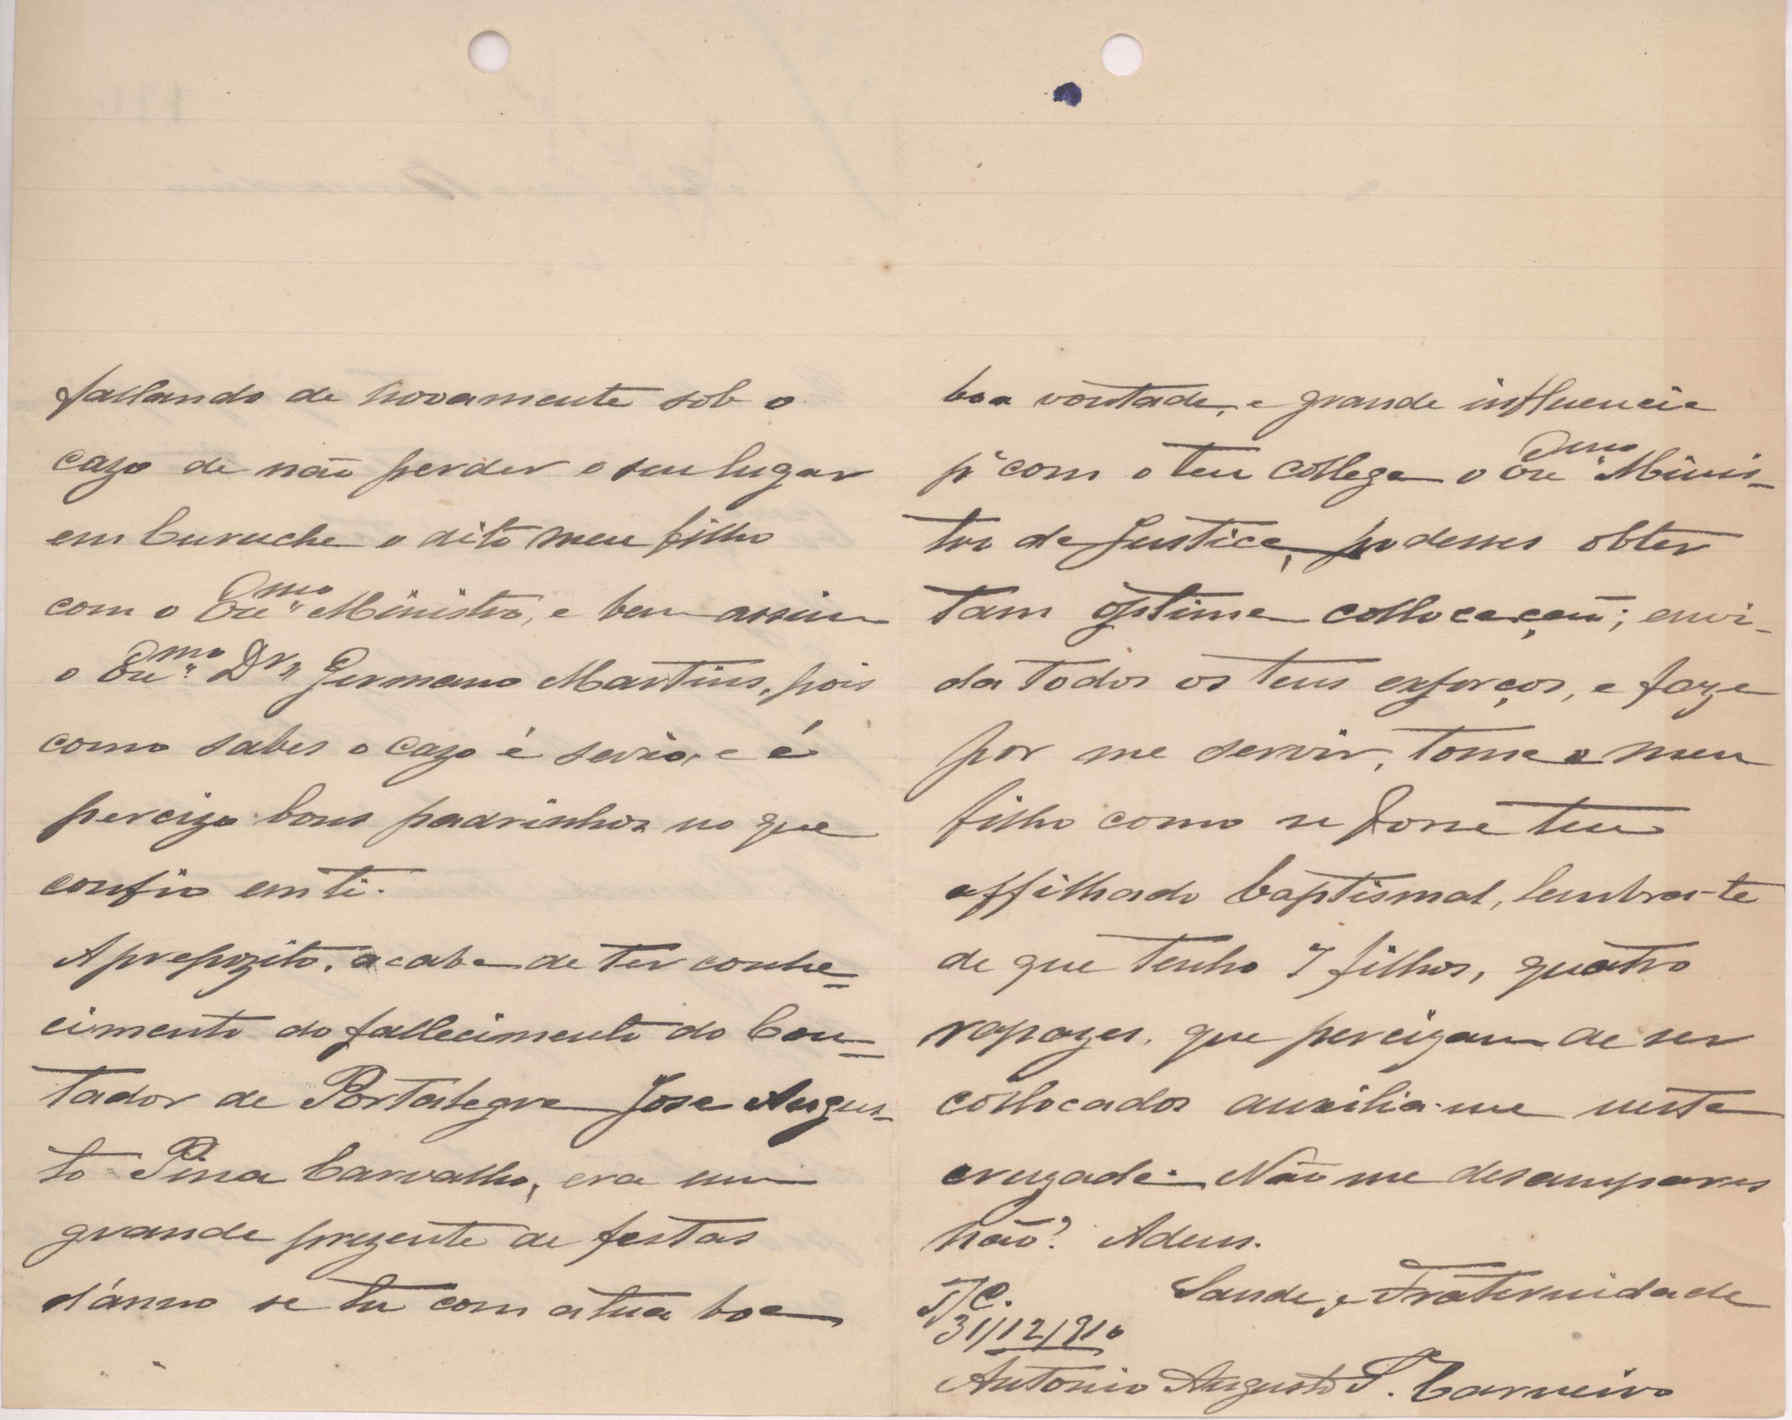 fallando de novamente sob o
cazo de não perder o seu lugar
em Curuche o dito meu filho
com o Exmo Ministro, e bem assim
o Exmo Dr Germano Martins, pois
como sabes o cazo é serio, e é
percizo bons padrinhos no que
confio em ti.
A prepozito, acabo de ter conhe=
cimento do fallecimento do Con=
tador de Portalegre Jose Augus-
to Pina Carvalho, era um
grande prezente de festas
d'anno se tu com a tua boa
boa vontade, e grande influencia
pª com o teu collega o Exmo Minis-
tro de Justiça, podesses obter
tam óptima collocaçaõ; envi-
da todos os teus exforços, e faze
por me servir, toma o meu
filho como se fosse teu
affilhado baptismal, lembra-te
de que tenho 7 filhos, quatro
rapazes, que percizam de ser
collocados auxilia-me nesta
cruzada. Não me desampares
não? Adeus.
Saude, e Fraternidade
T/C.
31/12/910
Antonio Augusto T. Carneiro